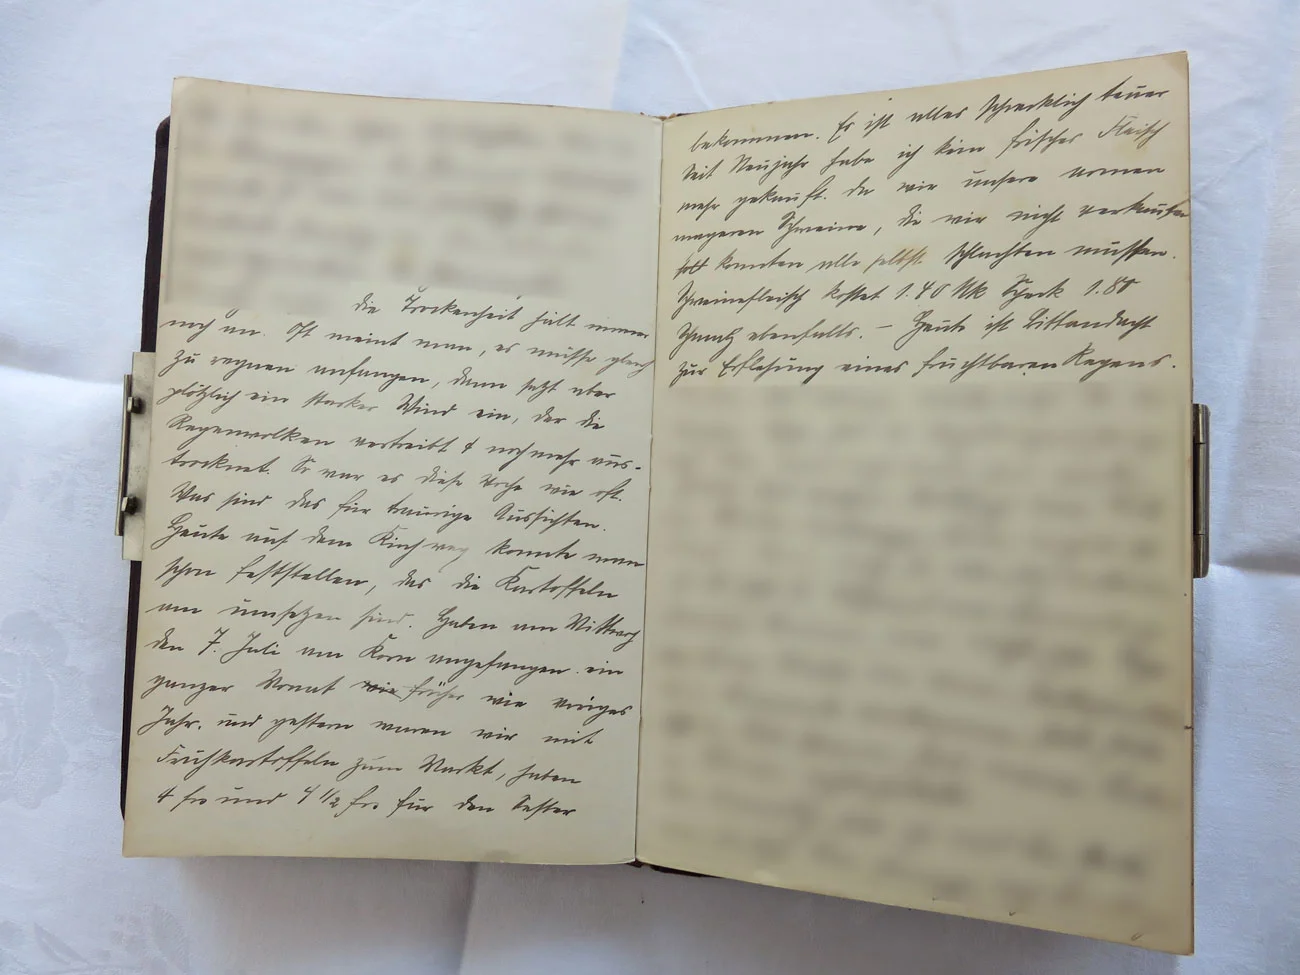 die Trockenheit hält immer
noch an. Oft meint man, es müsse gleich
zu regnen anfangen, dann setzt aber
plötzlich ein starker Wind ein, der die
Regenwolken vertreibt & noch mehr aus-
trocknet. So war es diese Woche wie oft.
Was sind das für traurige Aussichten.
Heute auf dem Kirchweg konnte man
schon feststellen, das die Kartoffeln
am umsetzen sind. Haben am Mittwoch
den 7. Juli am Korn angefangen. ein
ganzer Monat wie früher wie voriges
Jahr. und gestern waren wir mit
Frühkartoffeln zum Markt, haben
4 frs und 4 1/2 frs für den Sester
bekommen. Es ist alles schrecklich teuer
Seit Neujahr habe ich kein frisches Fleisch
mehr gekauft. da wir unsere armen
mageren Schweine, die wir nicht verkaufen
konnten alle selbst schlachten mussten.
Schweinefleisch kostet 1.40 Mk Speck 1.80
Schmalz ebenfalls. — Heute ist Bittandacht
zur Erflehung eines fruchtbaren Regens.